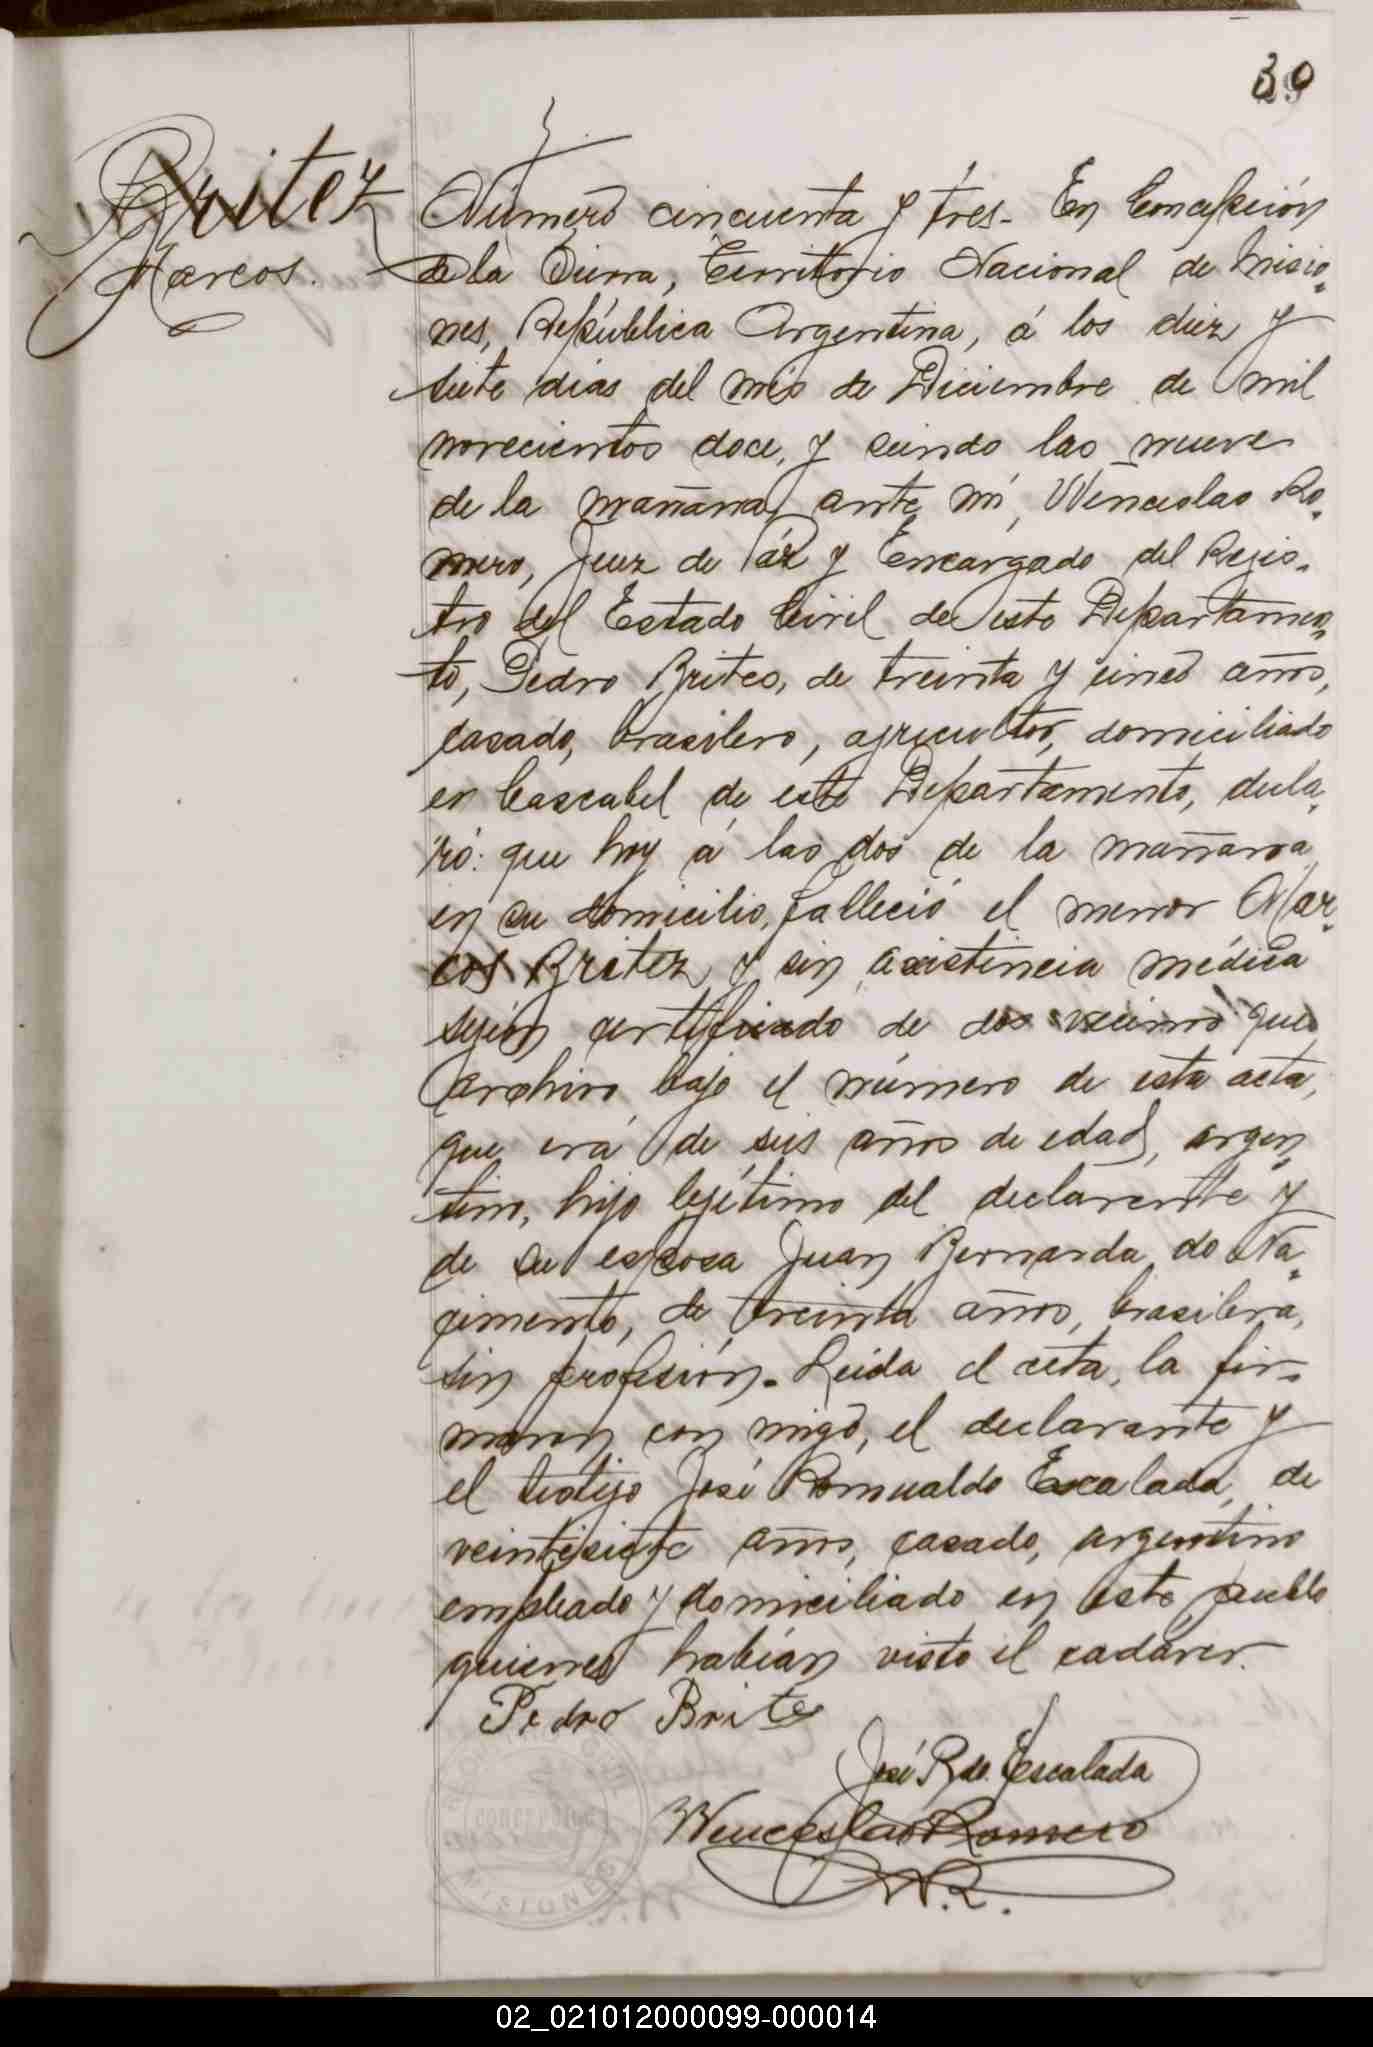 30
Britez
Marcos.
Número cincuenta y tres- En Concepción
de la Sierra, Territorio Nacional de Misio-
nes, República Argentina, á los diez y
siete dias del mes de Diciembre de mil
novecientos doce, y siendo las nueve
de la mañana, ante mi, Wenceslao Ro-
mero, Juez de Páz y Encargado del Regis-
tro del Estado Civil de este Departamen-
to, Pedro Brites, de treinta y cinco años,
casado, brasilero, agricultor, domiciliado
en Cascabel de este Departamento, decla-
ró: que hoy á las dos de la mañana
en su domicilio, falleció el menor Mar-
cos Britez y sin asistencia médica
según certificado de dos vecinos que
archivo bajo el número de esta acta,
que erá de seis años de edad, argen-
tino, hijo legítimo del declarante y
de su esposa Juan Bernarda do Na-
cimento, de treinta años, brasilera,
sin profesión.- Leida el acta, la fir-
maron con migo, el declarante y
el testigo José Romualdo Escalada, de
veintisiete años, casado, argentino
empleado y domiciliado en este pueblo
quienes habían visto el cadaver.
Pedro Brites
José Rdo. Escalada
Wenceslao Romero
CONCEPCION
MISIONES
02_021012000099-000014